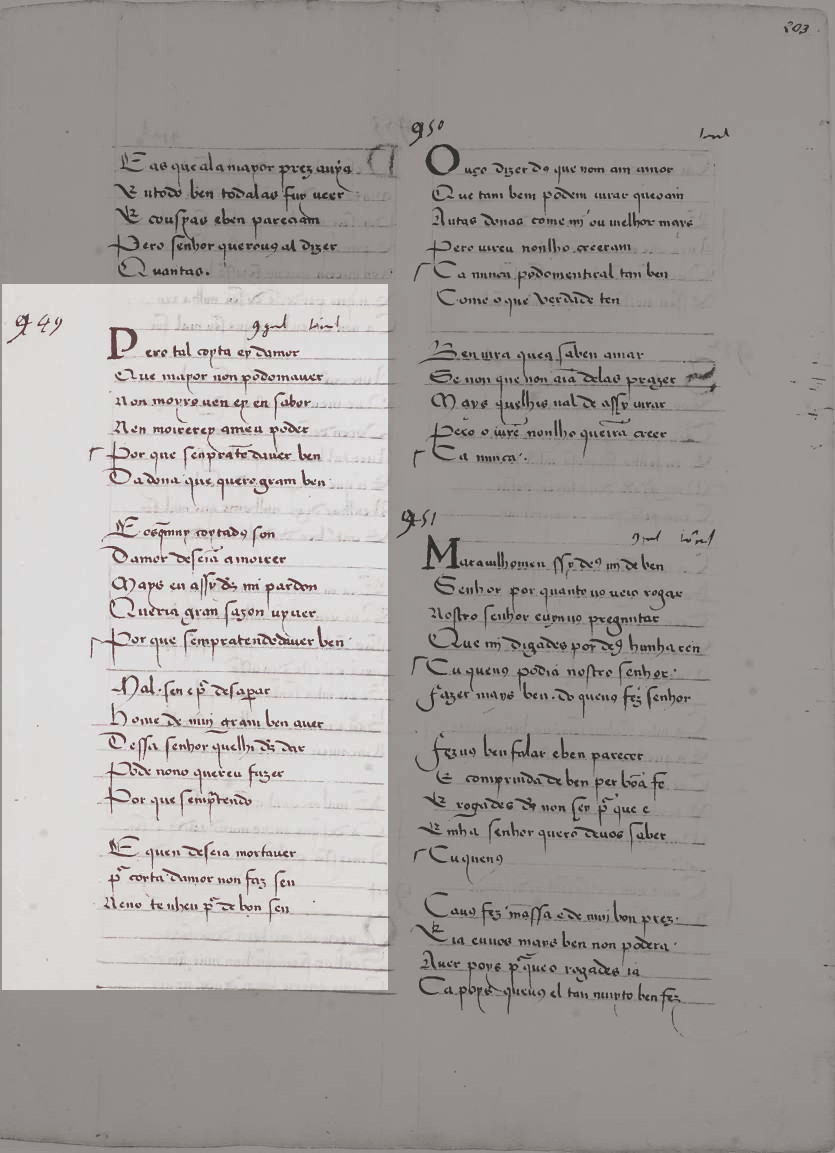 203
E as que ala mayor prez auya
E utodo ben todalas fuy ueer
E cousyas eben pareciam
Pero senhor querouꝯ al dizer
Quantas.
949
Pero tal coyta ey damor
Que mayor non podomauer
Non moyro uen ey en sabor
Nen moirerey ameu poder
Por que senpratẽdauer ben
Da dona que quero gram ben
E os coytadꝯ son
Damor deseiã amoirer
Mays eu assy ds̃ mi pardon
Queria gran sazon uyuer
Por que sempratendodauer ben
Mal sen e pr̃ desaspar
Home de mui gram ben auer
Dessa senhor quelhi ds̃ dar
Pode nono quereu fazer
Por que sempr̃tendo
E quen deseia mortauer
pr̃ coyta damor non faz sen
Neno tenheu pr̃ de bon sen
950
Ouço dizer dꝯ que nom am amor
Que tam bem podem iurar queoam
Autas donas come mi ou melhor mays
Pero uireu nonlho creeram
Ca nunca podomentiral tan ben
Come o que uerdade ten
Ben iura queꝯ saben amar
Se non que non aiã delas prazer
Mays quelhis ual de assy iurar
Pero o iurẽ nonlho queirã creer
Ca nunca
951
Marauilhomen ssy deꝯ mi de ben
Senhor por quanto uo ueio rogar
Nostro senhor euynuꝯ preguntar
Que mi digades por deꝯ hunha ren
Cu quenꝯ podia nostro senhor
Fazer mays ben. do quenꝯ fez senhor
Fezuꝯ ben falar eben parecer
E comprinda de ben per bõa fe
E rogades ds̃ non sey pr̃ que e
E mha senhor quero deuos saber
Cu quenꝯ
Cauꝯ fez massa e de mui bon prez
E ia euuos mays ben non podera
Auer poys pr̃ queo rogades ia
Ca poys queuꝯ el tan muyto ben fez